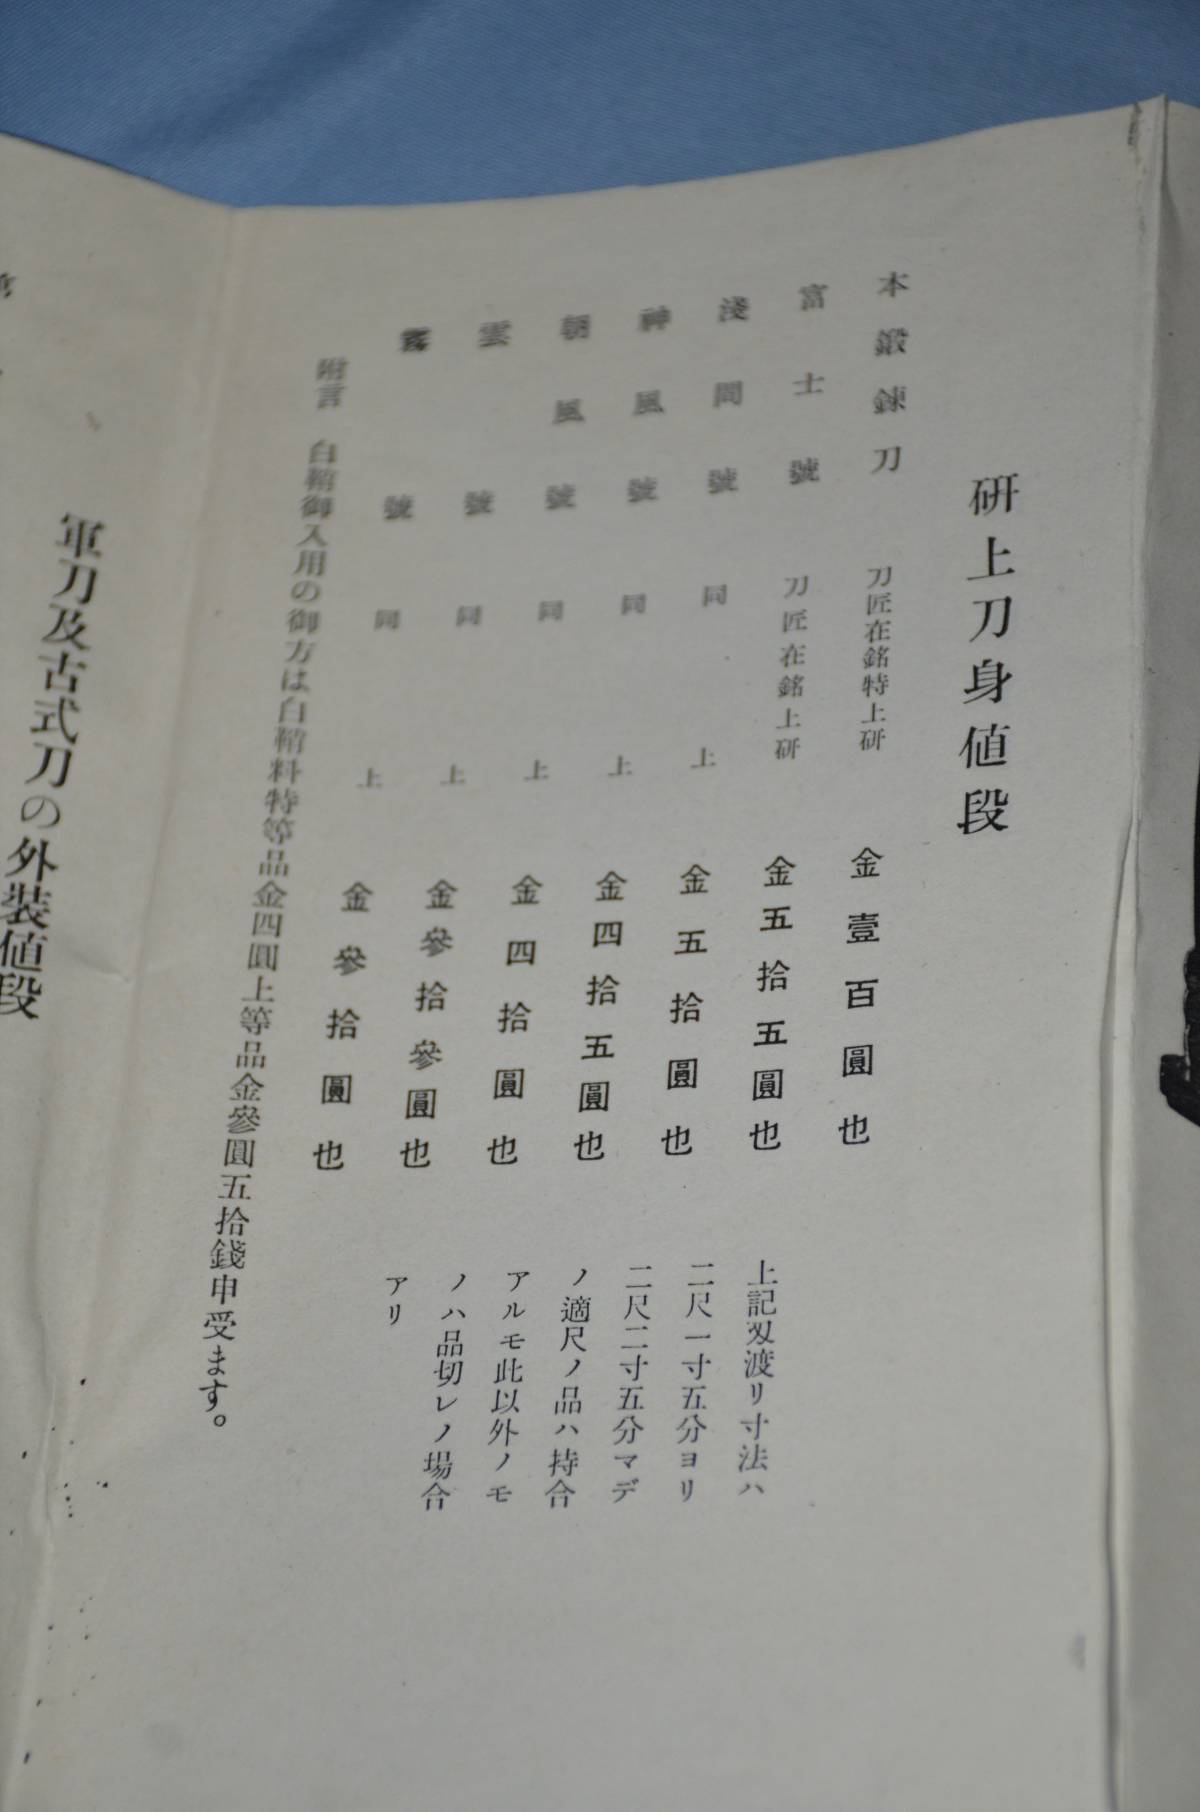 研上刀身値段
本鍛錬刀 刀匠在銘特上研 金壹百圓也
富士號 刀匠在銘上研 金五拾五圓也
淺間號 同上 金五拾圓也
神風號 同上 金四拾五圓也
朝風號 同上 金四拾圓也
雲號 同上 金參拾參圓也
號 同上 金參拾圓也
上記刄渡リ寸法ハ
二尺一寸五分ヨリ
二尺二寸五分マデ
ノ適尺ノ品ハ持合
アルモ此以外ノモ
ノハ品切レノ場合
アリ
附言 白鞘御入用の御方は白鞘料特等品金四圓上等品金參圓五拾錢申受ます。
軍刀及古式刀の外装値段